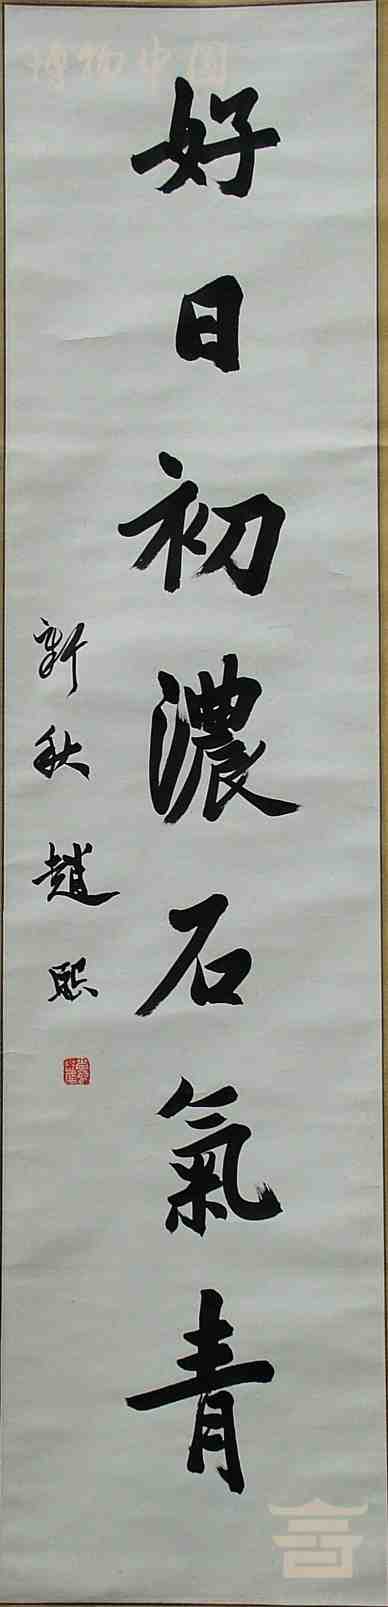 博物中国
好日初濃石氣青
新秋 趙熙